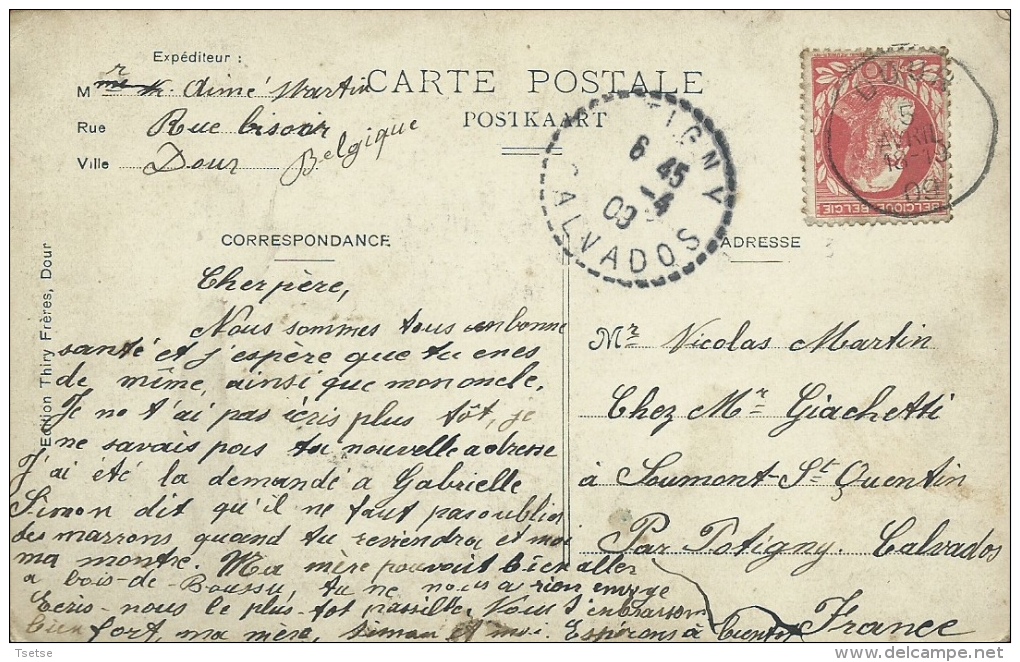 Expéditeur :
Mr Aimé Martin
Rue
Ville Dour Belgique
CARTE POSTALE
POSTKAART
CORRESPONDANCE
ADRESSE
Edition Thiry Frères, Dour
IGNY
6 45
14
09
CALVADOS
DOUR
5
AVRIL
18-19
09
BELGIQUE BELGIE
Cher père,
Nous sommes tous en bonne
santé et j'espère que tu en es
de même, ainsi que mon oncle.
Je ne t'ai pas écris plus tôt, je
ne savais pas ta nouvelle adresse
J'ai été la demandé à Gabrielle
Simon dit qu'il ne faut pas oublier
des marrons quand tu reviendra et moi
ma montre. Ma mère pouvait bien aller
a bois-de Boussu, tu ne nous a rien envoye
Ecris-nous le plus-tot possible. Nous t'embrassons
bien fort, ma mère, Simon et moi. Espérons à bientot
Mr Nicolas Martin
Chez Mr Giachetti
à Soumont-St Quentin
Par Potigny. Calvados
France
Tsetse
delcampe.net